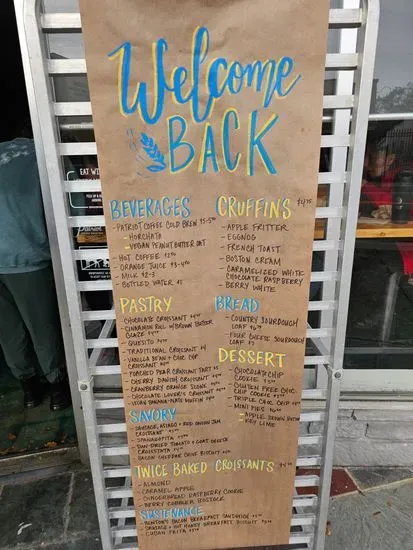 Welcome
BACK
BEVERAGES
- PATRIOT COFFEE COLD BREW $5-
- HORCHATA
- VEGAN PEANUT BUTTER OAT
- HOT COFFEE
- ORANGE JUICE $3-
- MILK $2-3
- BOTTLED WATER
CRUFFINS $4.75
- APPLE FRITTER
- EGGNOG
- FRENCH TOAST
- BOSTON CREAM
- CARAMELIZED WHITE
CHOCOLATE RASPBERRY
- BERRY WHITE
PASTRY
- CHOCOLATE CROISSANT
- CINNAMON ROLL W/ BROWN BUTTER
GLAZE
- QUESITO
- TRADITIONAL CROISSANT
- VANILLA BEAN + CHOC CHIP
CROISSANT
- POACHED PEAR CROISSANT TART $5
- CHERRY DANISH CROISSANT
- CRANBERRY ORANGE SCONE
- CHOCOLATE LOVER'S CROISSANT
- VEGAN BANANA-NUTE MUFFIN
BREAD
- COUNTRY SOURDOUGH
LOAF
- FOUR CHEESE SOURDOUGH
LOAF
DESSERT
- CHOCOLATE CHIP
COOKIE
- GLUTEN FREE CHOC
CHIP COOKIE
- TRIPLE CHOC CHIP
- MINI PIES
- APPLE BROWN BUTTER
- KEY LIME
SAVORY
- SAUSAGE, ASIAGO + RED ONION JAM
CROISSANT
- SPANAKOPITA
- SUN-DRIED TOMATO + GOAT CHEESE
CROISSTATA
- BACON CHEDDAR CHIVE BISCUIT
TWICE BAKED CROISSANTS
- ALMOND
- CARAMEL APPLE
- GINGERBREAD RASPBERRY COOKIE
- BERRY COBBLER BOSTOCK
SUBSTENANCE
- BENTON'S BACON BREAKFAST SANDWICH
- SAUSAGE + HOT HONEY BREAKFAST BISCUIT
- CUBAN FRITTA